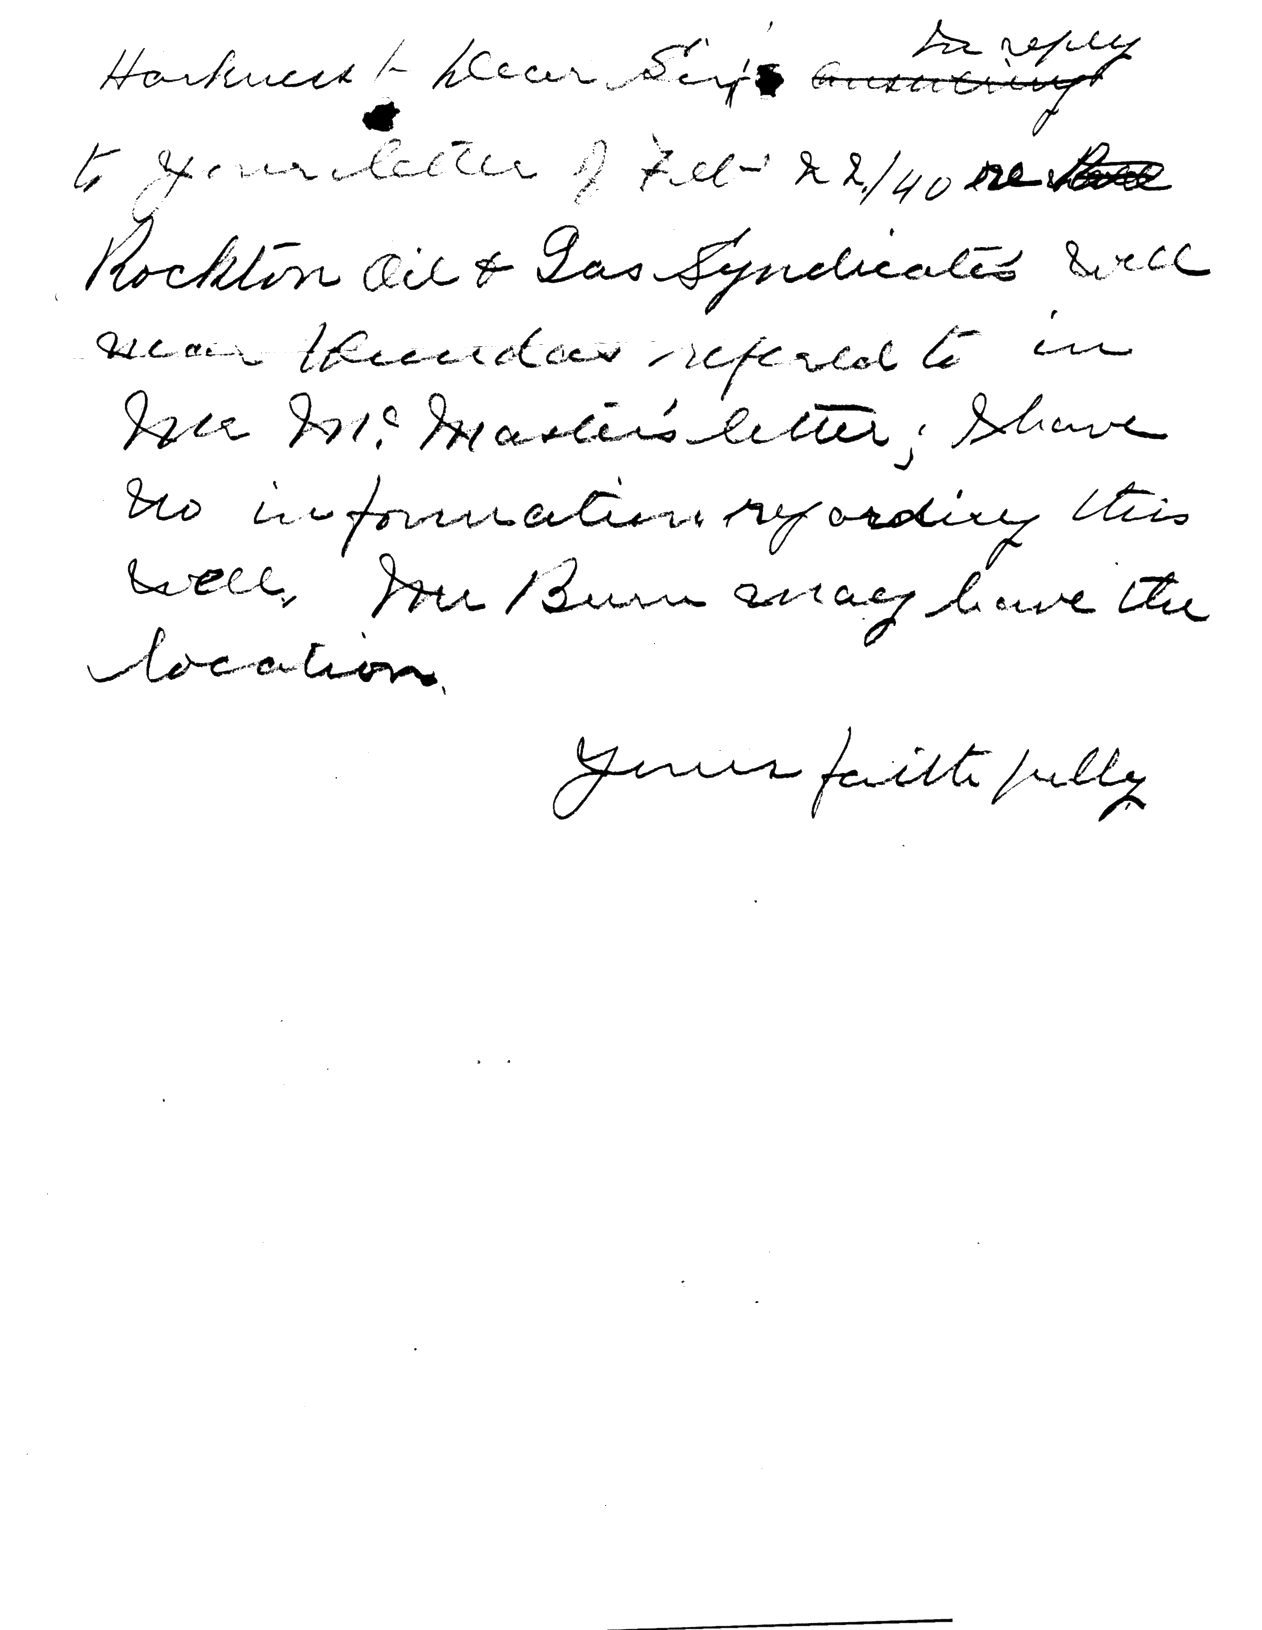 Harkness – Dear Sir; answering In reply
to your letter of Feb 22/40 re
Rockton Oil & Gas Syndicates well
near Dundas refered to in
Mr Mc Master's letter; I have
no information regarding this
well, Mr Burn may have the
location.
Yours faithfully